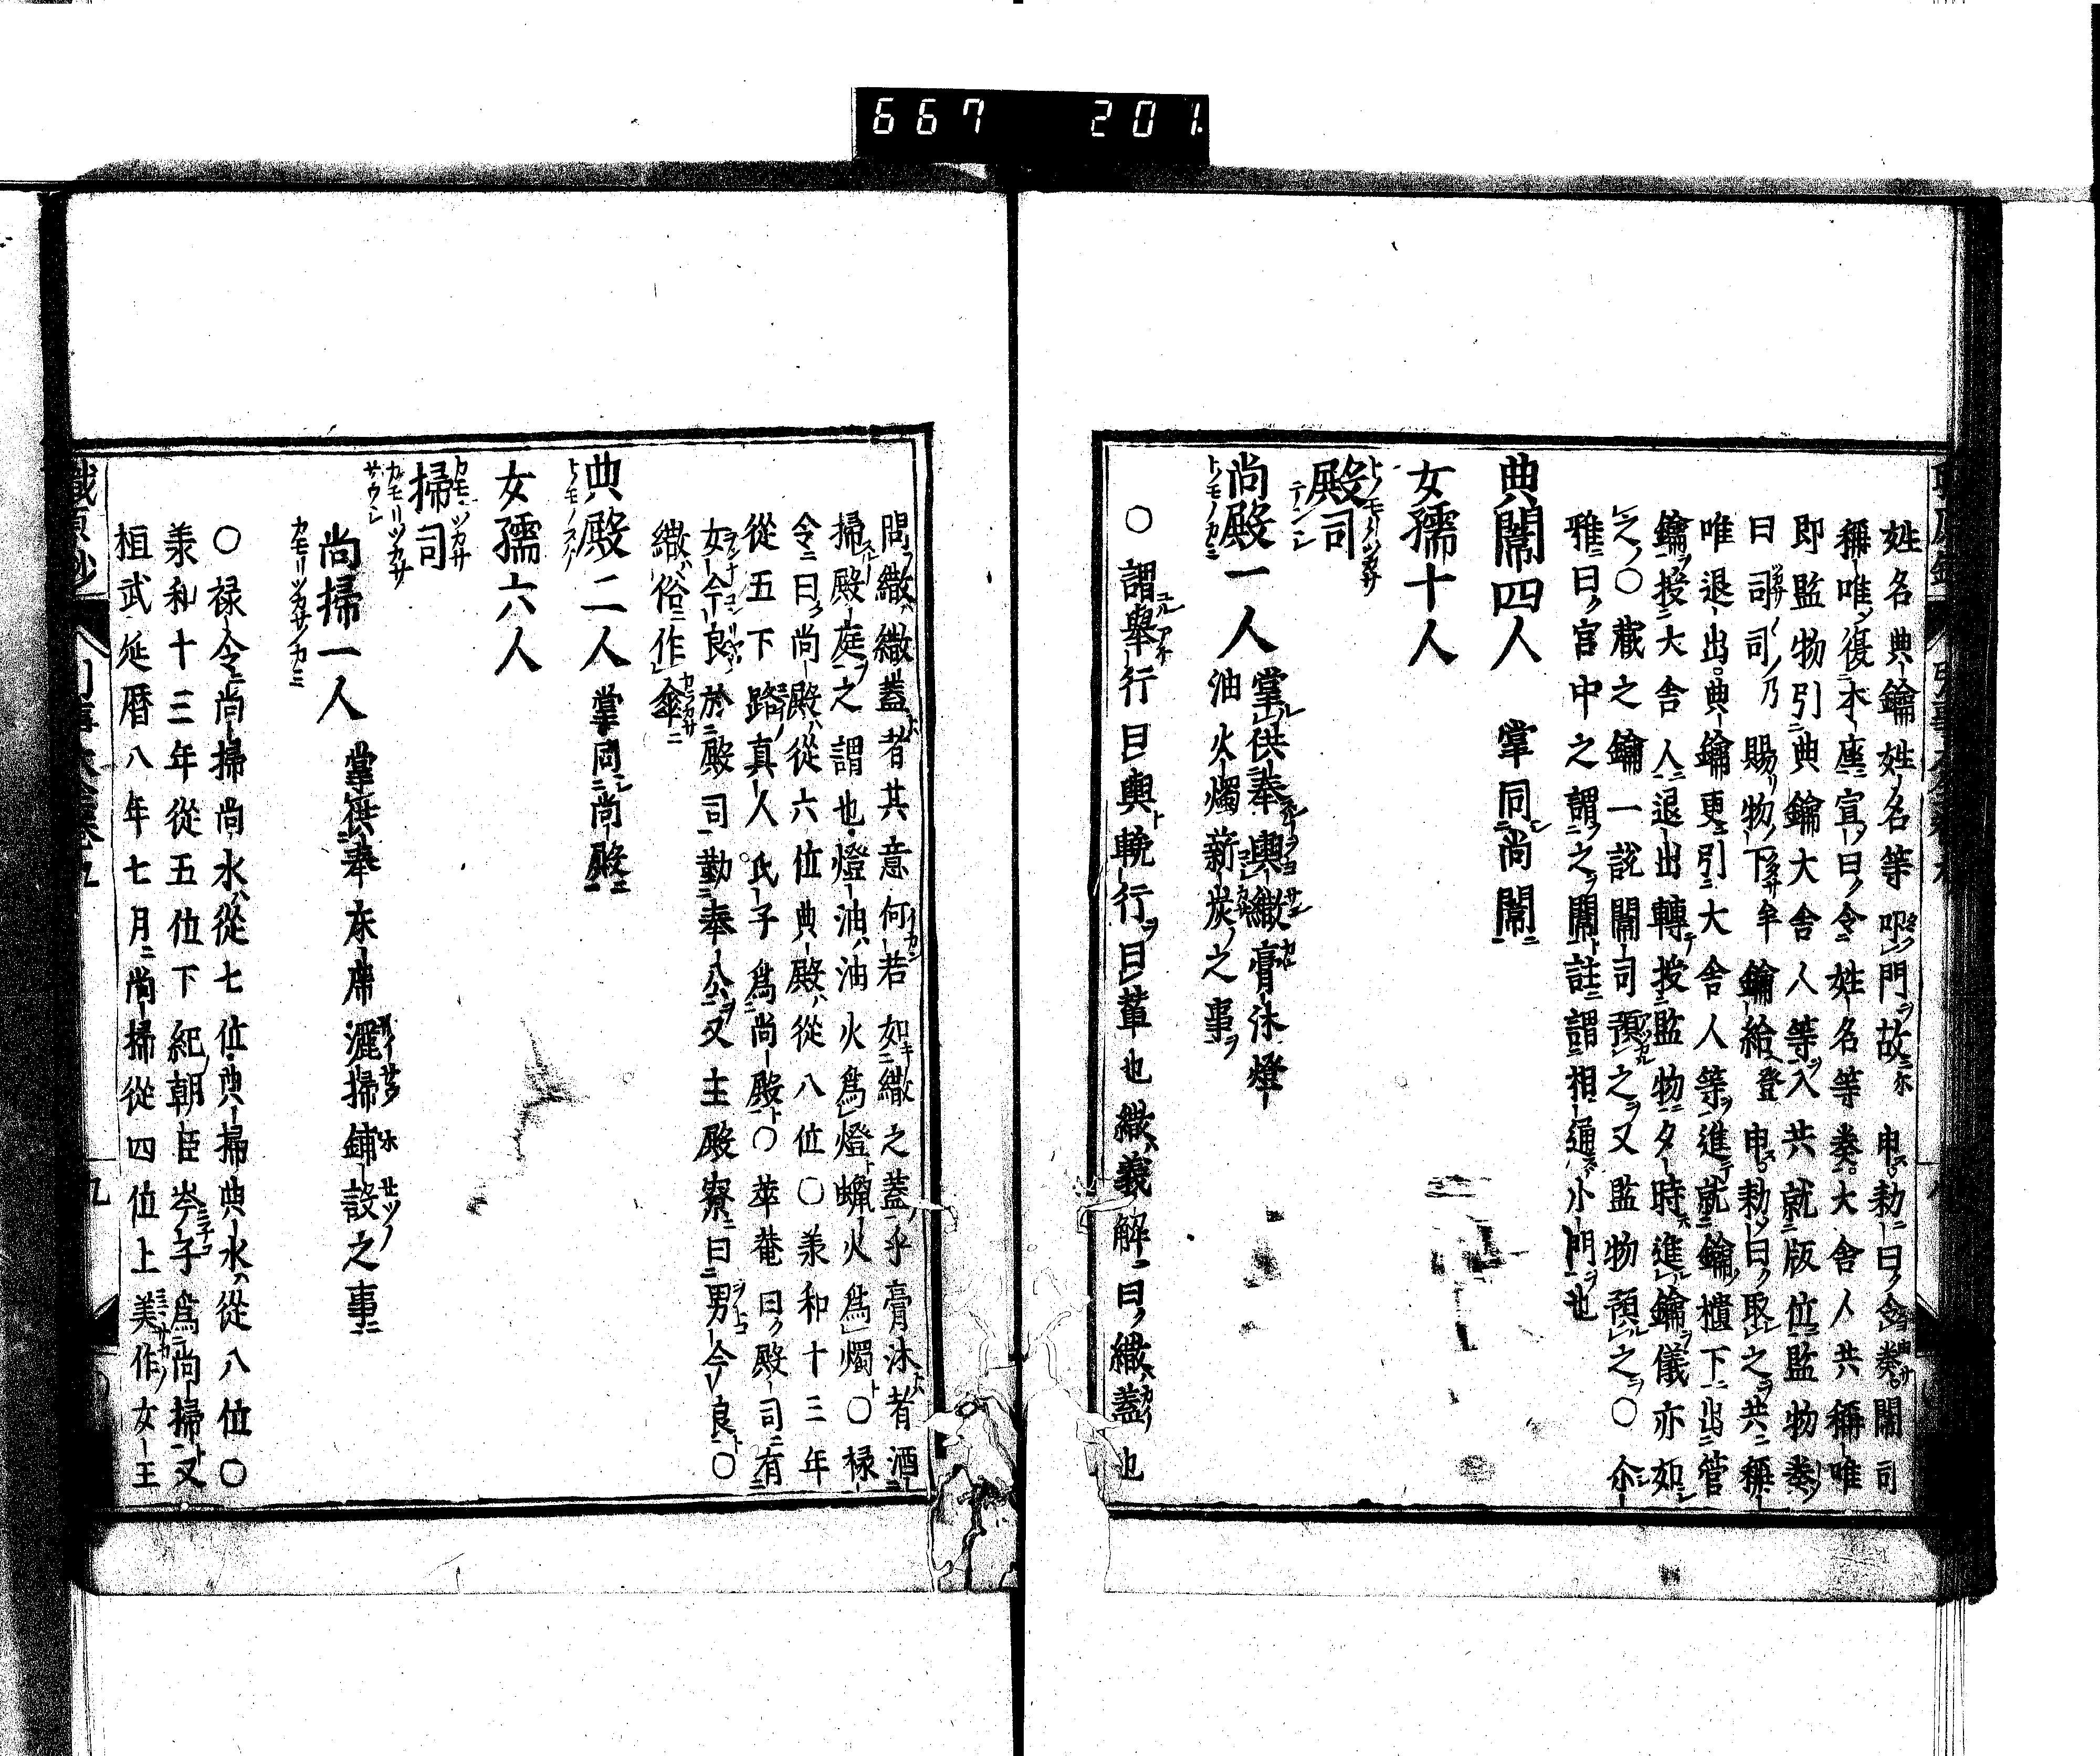 667 201
姓名典鑰姓名等叩門故申勅曰令奏闈司
稱唯復本座宣曰令姓名等奏大舎人共稱唯
即監物引典鑰大舎人等入共就版位監物奏
曰司司乃賜物下牟鑰給登申勅曰取之共稱
唯退出典鑰更引大舎人等進就鑰櫃下出管
鑰授大舎人退出轉授監物夕時進鑰儀亦如
之○藏之鑰一説闈司預之又監物預之○尒
雅曰宮中之謂之闈註謂相通小門也
典闈四人 掌同尚闈
女孺十人
殿司
尚殿一人 掌供奉輿繖膏沐燈
油火燭薪炭之事
○謂擧行曰輿輓行曰輦也繖義解曰繖蓋也
問繖繖蓋者其意何若如繖之蓋乎膏沐者酒
掃殿庭之謂也燈油油火爲燈蠟火爲燭○禄
令曰尚殿從六位典殿從八位○羕和十三年
從五下路真人氏子爲尚殿○莘菴曰殿司有
女今良於殿司勤奉公又主殿寮曰男今良○
繖俗作傘
典殿二人 掌同尚殿
女孺六人
掃司
尚掃一人 掌供奉床席灑掃鋪設之事
○禄令尚掃尚水從七位典掃典水從八位○
羕和十三年從五位下紀朝臣岑子爲尚掃又
桓武延暦八年七月尚掃從四位上美作女王